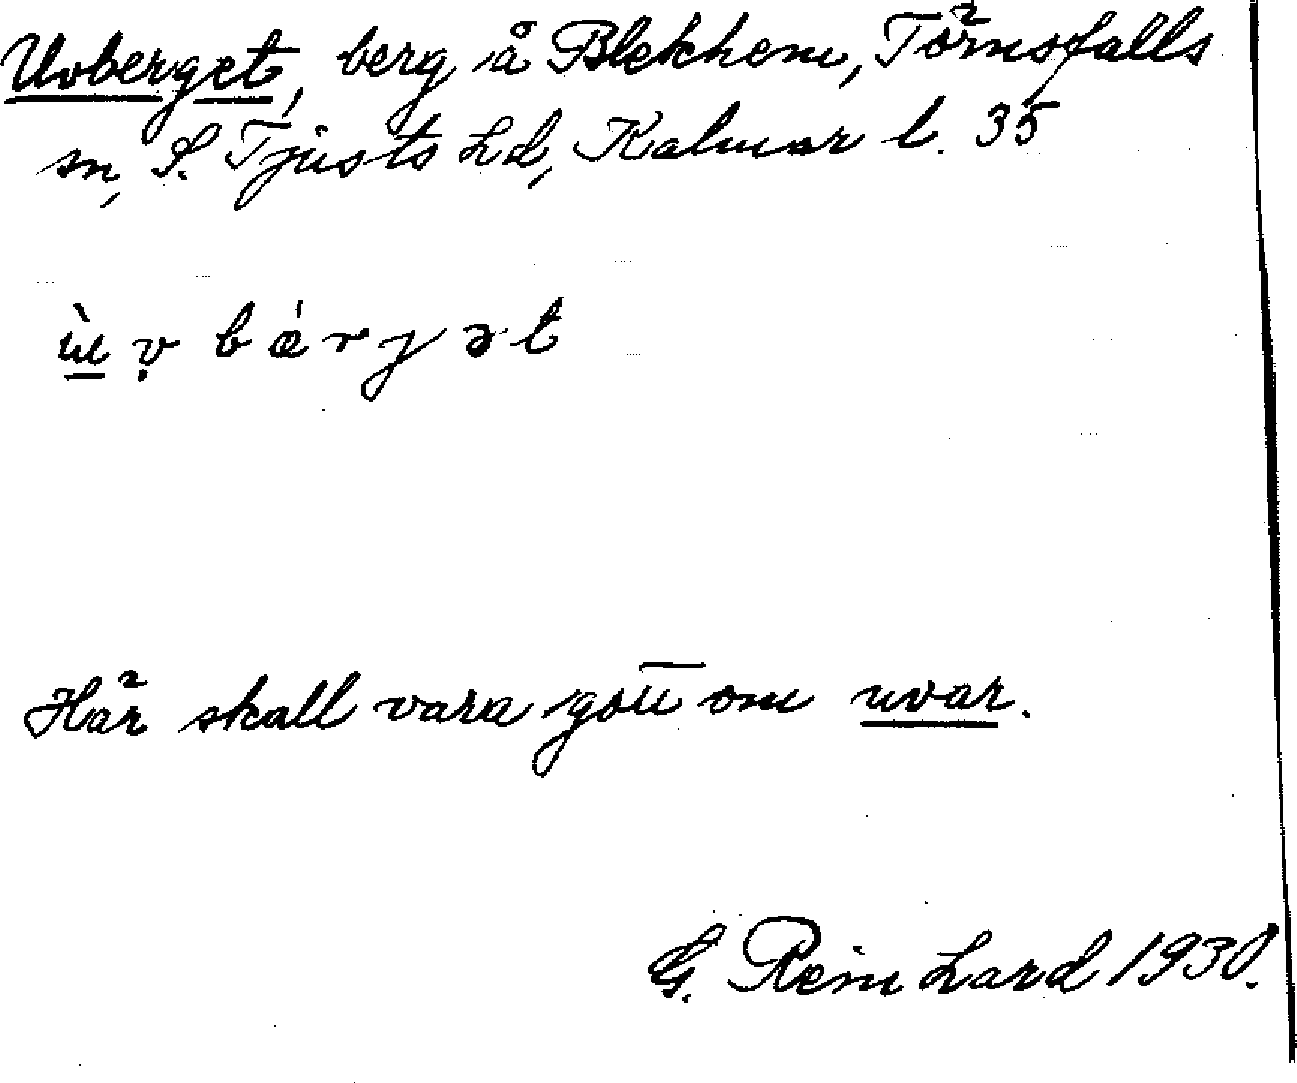 Uvberget, berg å Blekhem, Törnsfalls
sn, S. Tjusts hd, Kalmar l. 35
ùvbǽrjət
Här skall vara gott om uvar.
G. Reinhard 1930.